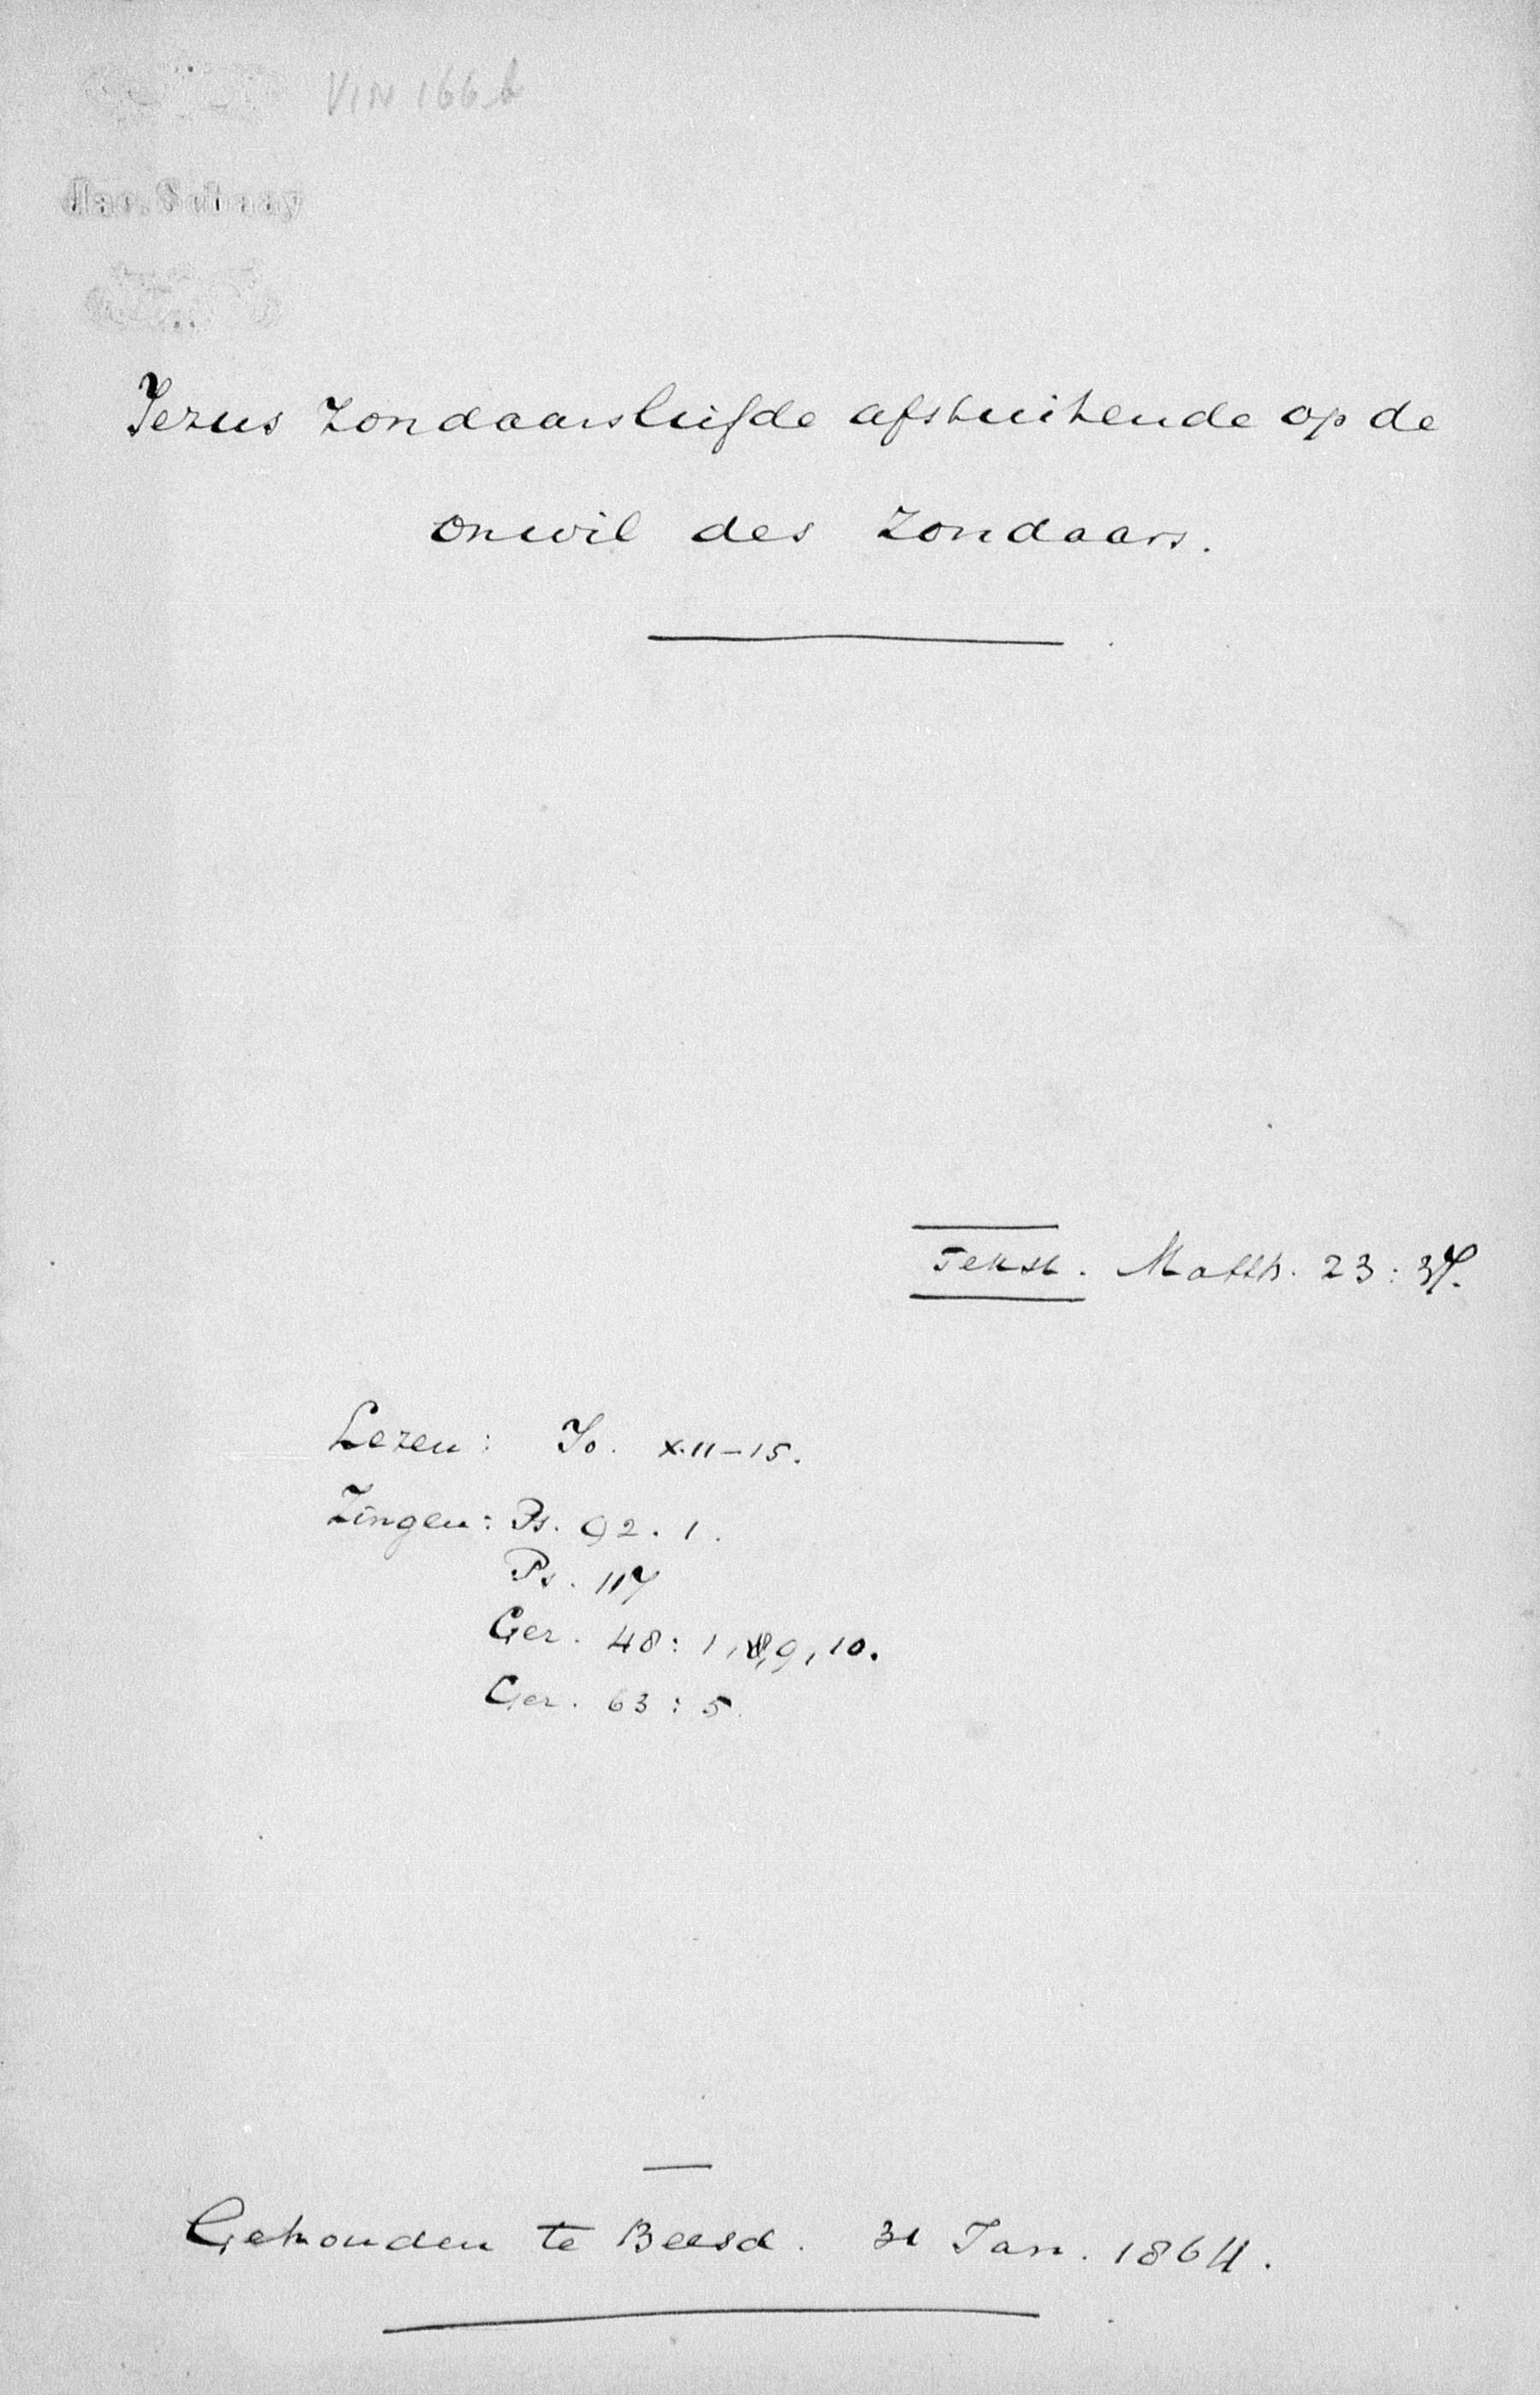 VIN 166b
Jezus zondaarsliefde afstuitende op de
onwil des zondaars.
Tekst. Matth. 23:37.
Lezen: Jo. X.11-15.
Zingen: Ps. 92.1.
Ps. 117
Gez. 48:1, 8, 9, 10.
Gez. 63:5.
Gehouden te Beesd. 31 Jan. 1864.